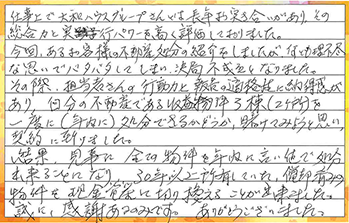 仕事上で大和ハウスグループさんとは長年お突き合いがあり、その
総合力と実行パワーを高く評価しておりました。
今回、あるお客様の不動産処分の紹介をしましたが、
な思いでバタバタしてしまい、決局不成立となりました。
その際、担当者さんの行動力と
あり、自分の不動産である収益物件3棟(2ヶ所)を
一度に(年内に)処分できるかどうか、賭けてみようと思い
契約に到りました。
結果、見事に全ての物件を年内に言い値で処分
出来ることになり、30年以上所有していた、償却済
物件を現金
誠に感謝あるのみです。ありがとうございました。